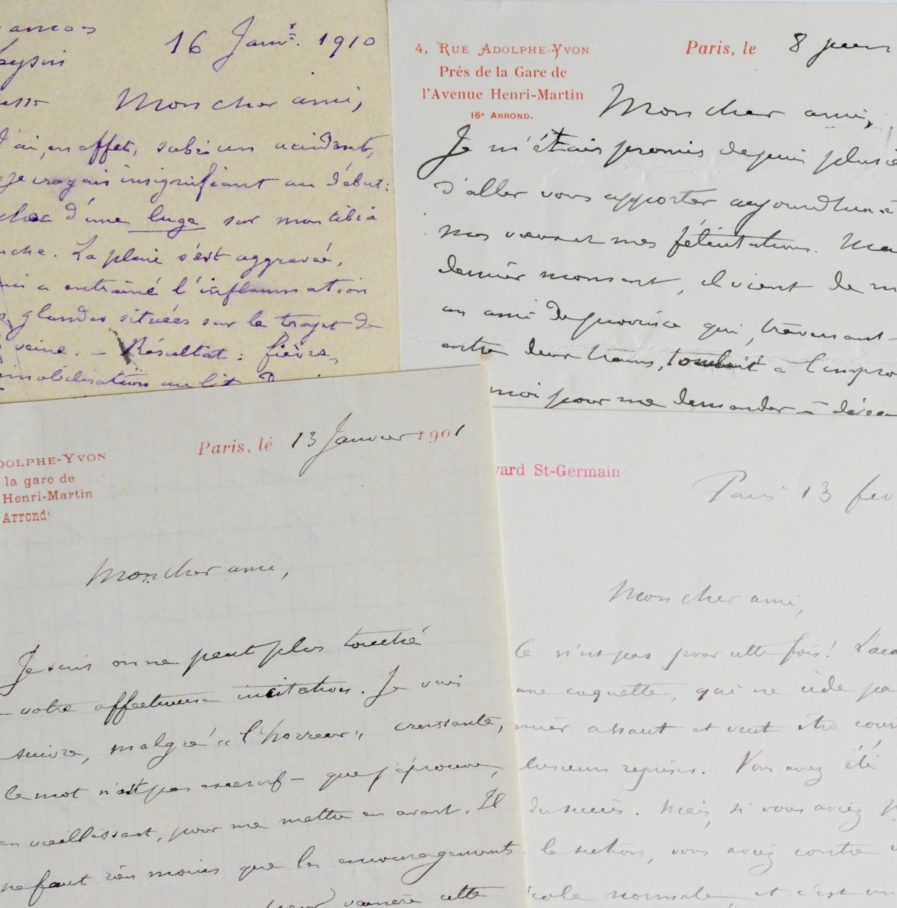 16 Janv. 1910
Mon cher ami,
J'ai, en effet, subi un accident,
je croyais insignifiant au début :
d'une luge sur mon tibia
La plaie s'est aggravée,
a entraîné l'inflammation
glandes situées sur le trajet de
veine. – Résultat : fièvre,
immobilisation au lit.
4, RUE ADOLPHE-YVON
Près de la Gare de
l'Avenue Henri-Martin
16e ARROND.
Paris, le 8 juin
Mon cher ami,
Je m'étais promis depuis
d'aller vous apporter aujourd'hui
mes vœux et mes félicitations.
dernier moment, il vient de
un ami de province qui, traversant
entre deux trains, tombait à
moi pour me demander à
ADOLPHE-YVON
la gare de
Henri-Martin
Arrondt
Paris, le 13 Janvier 1901
Mon cher ami,
Je suis on ne peut plus touché
votre affectueuse invitation. Je vais
suivre, malgré « l'horreur » croissante,
le mot n'est pas excessif – que j'éprouve,
en vieillissant, pour me mettre en avant. Il
ne faut rien moins que les encouragements
cette
vard St-Germain
Paris 13 fev
Mon cher ami,
Ce n'est pas pour cette fois !
une coquette, qui ne cède
assaut et veut être
plusieurs reprises. Vous avez été
du succès. Mais, si vous aviez
la section, vous aviez contre
école normale, et c'est